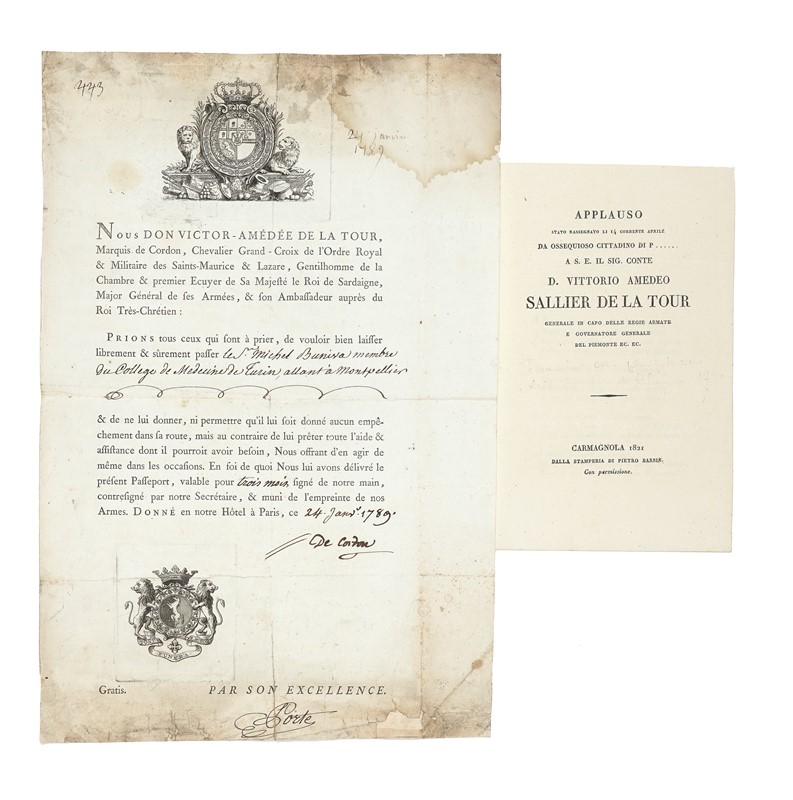 443
24 Janvier
1789
NOUS DON VICTOR-AMÉDÉE DE LA TOUR,
Marquis de Cordon, Chevalier Grand-Croix de l'Ordre Royal
& Militaire des Saints-Maurice & Lazare, Gentilhomme de la
Chambre & premier Ecuyer de Sa Majesté le Roi de Sardaigne,
Major Général de ſes Armées, & ſon Ambaſſadeur auprès du
Roi Très-Chrétien :
PRIONS tous ceux qui ſont à prier, de vouloir bien laiſſer
librement & sûrement paſſer le Sr. Michel Buniva membre
du College de Medecine de Turin, allant à Montpellier
& de ne lui donner, ni permettre qu'il lui ſoit donné aucun empê-
chement dans ſa route, mais au contraire de lui prêter toute l'aide &
aſſiſtance dont il pourroit avoir beſoin, Nous offrant d'en agir de
même dans les occaſions. En foi de quoi Nous lui avons délivré le
préſent Paſſeport, valable pour trois mois, ſigné de notre main,
contreſigné par notre Secrétaire, & muni de l'empreinte de nos
Armes. DONNÉ en notre Hôtel à Paris, ce 24. Janvr. 1789.
De Cordon
FUNERA
Gratis. PAR SON EXCELLENCE.
Porte
APPLAUSO
STATO RASSEGNATO LI 14 CORRENTE APRILE
DA OSSEQUIOSO CITTADINO DI P . . . . . .
A S. E. IL SIG. CONTE
D. VITTORIO AMEDEO
SALLIER DE LA TOUR
GENERALE IN CAPO DELLE REGIE ARMATE
E GOVERNATORE GENERALE
DEL PIEMONTE EC. EC.
CARMAGNOLA 1821
DALLA STAMPERIA DI PIETRO BARBIÈ.
Con permissione.